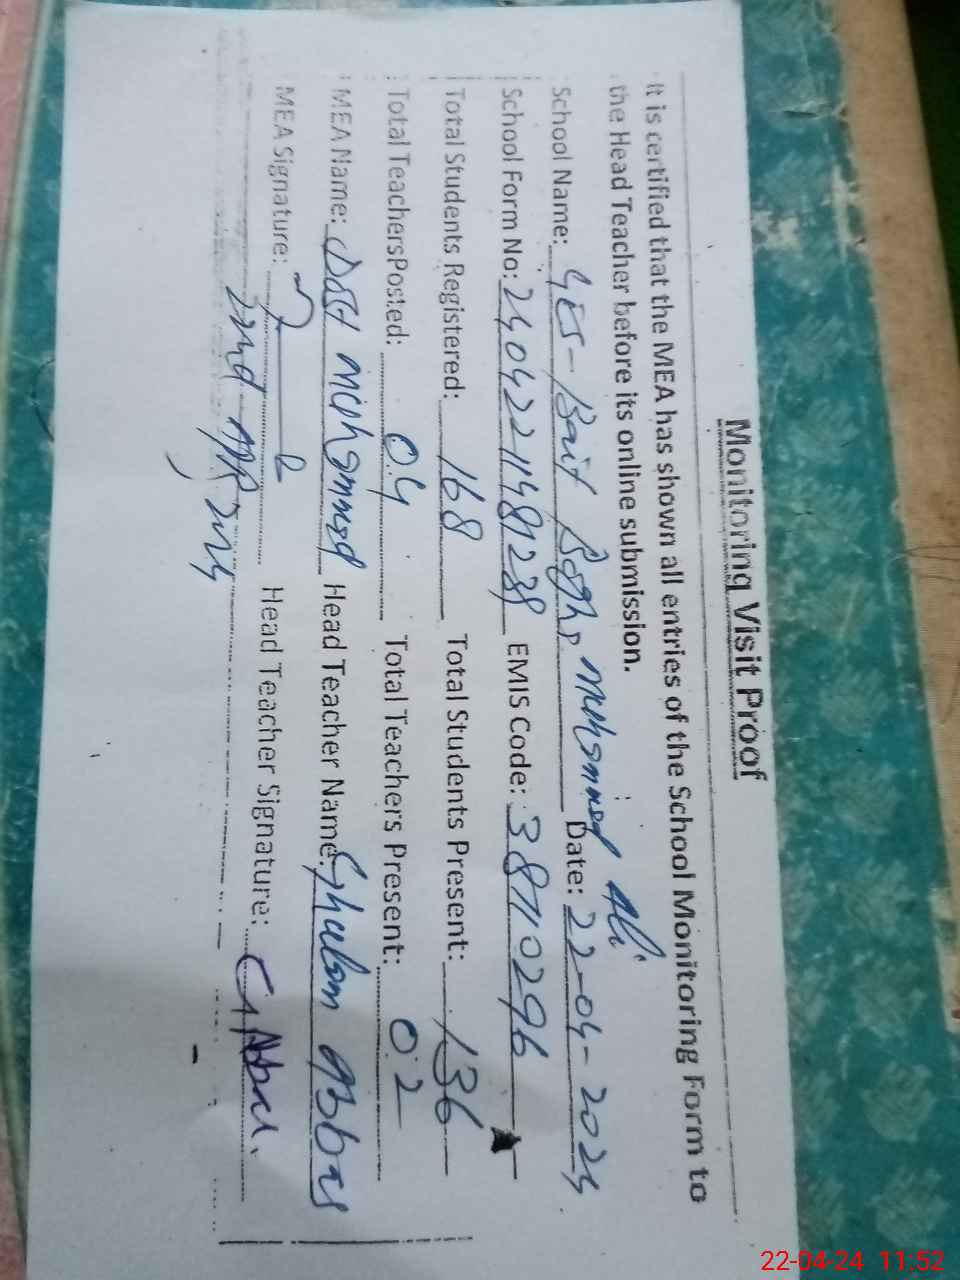 Monitoring Visit Proof
It is certified that the MEA has shown all entries of the School Monitoring Form to
the Head Teacher before its online submission.
School Name: GES-Bait Bagho Muhammad Ali Date: 22-04-2024
School Form No: 24042211481238 EMIS Code: 38710296
Total Students Registered: 168 Total Students Present: 136
Total Teachers Posted: 04 Total Teachers Present: 02
MEA Name: Dost Muhammad Head Teacher Name: Ghulam Abbas
MEA Signature: Head Teacher Signature: G Abbas
22nd APR 2024
22-04-24 11:52